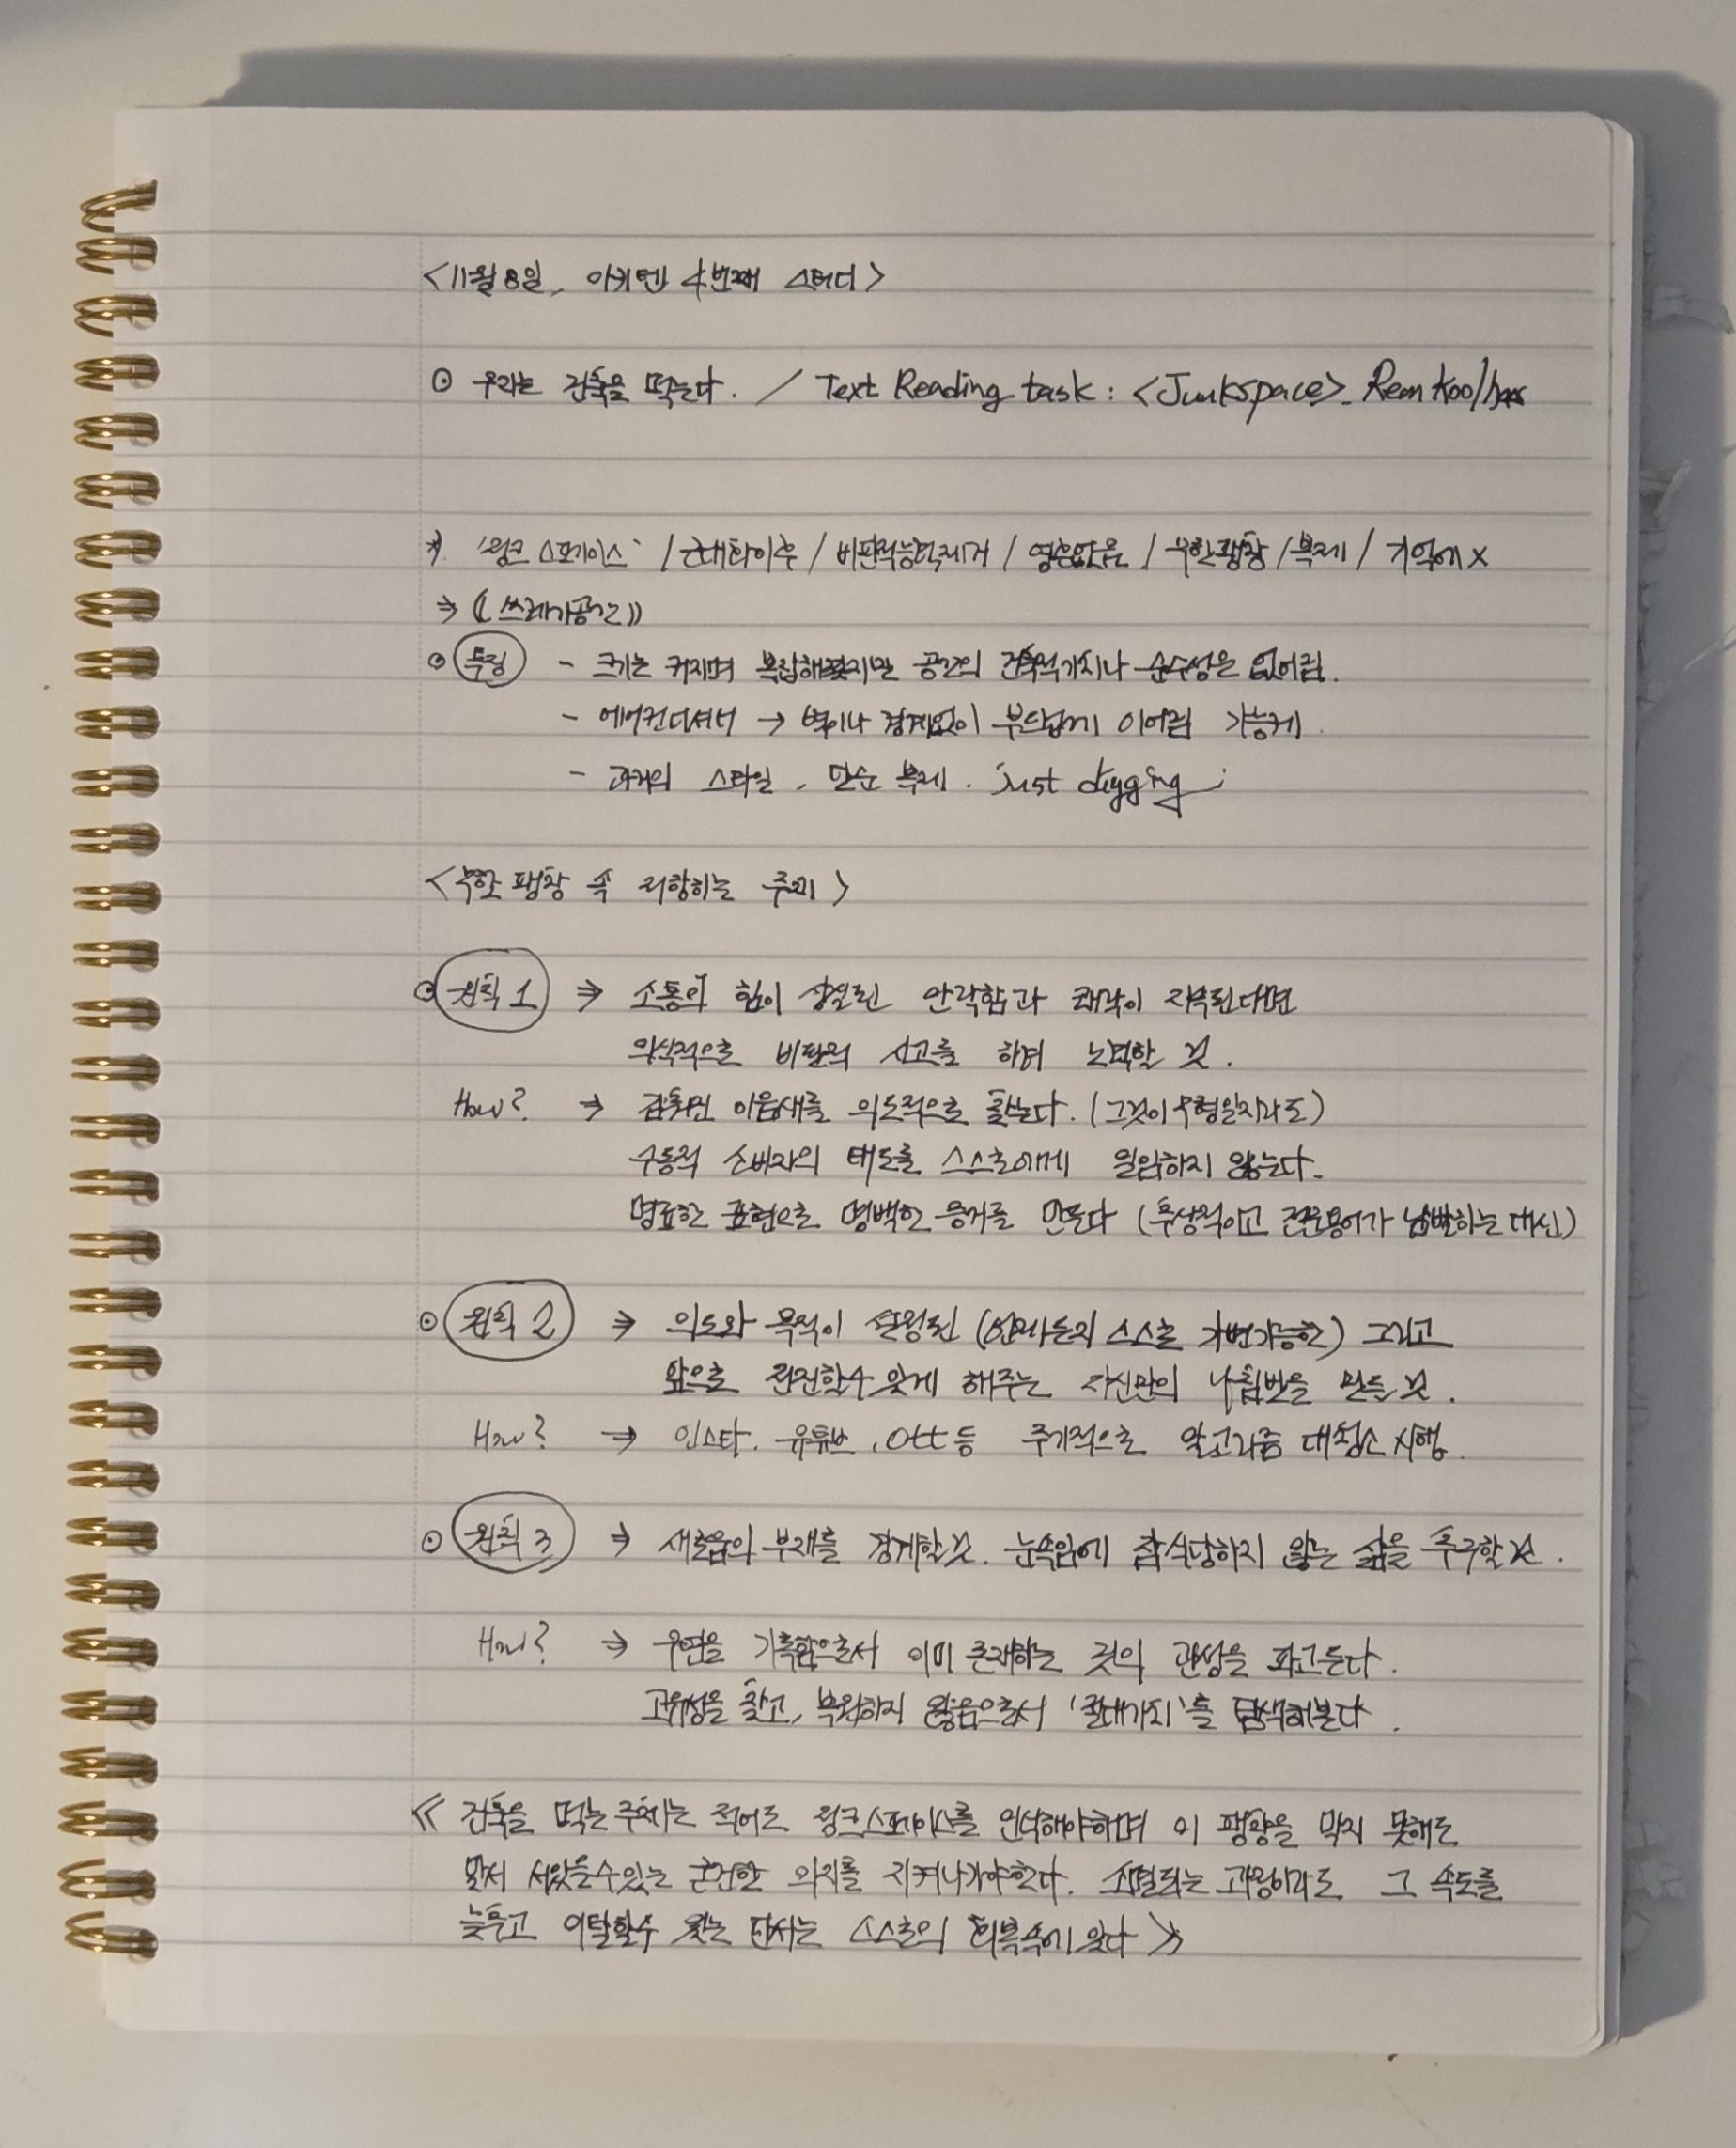 <11월 8일, 아키텐 4번째 스터디>
⊙ 우리는 건축을 먹는다. / Text Reading task : <Junkspace>_ Rem Koolhas
* '정크 스페이스' / 근대화이후 / 비판적능력제거 / 영혼없음 / 무한팽창 / 복제 / 기억에 x
⇒ 《쓰레기공간》
⊙ 특징 - 크기는 커지며 복잡해졌지만 공간의 건축적가치나 순수성은 없어짐.
- 에어컨디셔너 → 벽이나 경계없이 부드럽게 이어짐 가능케.
- 과거의 스타일, 단순 복제. just digging
<무한 팽창 속 저항하는 주체>
⊙ 원칙 1 ⇒ 소통의 힘이 상실된 안락함과 쾌락이 지속된다면
의식적으로 비판적 사고를 하며 노력할 것.
How? ⇒ 감춰진 이음새를 의도적으로 찾는다. (그것이 무형일지라도)
수동적 소비자의 태도를 스스로에게 일임하지 않는다.
명료한 표현으로 명백한 증거를 만든다 (추상적이고 전문용어가 남발하는 대신)
⊙ 원칙 2 ⇒ 의도와 목적이 설정된 (언제든지 스스로 가변가능한) 그리고
앞으로 전진할수 있게 해주는 자신만의 나침반을 만들 것.
How? ⇒ 인스타, 유튜브, Ott 등 주기적으로 알고리즘 대청소 시행.
⊙ 원칙 3 ⇒ 새로움의 부재를 경계할것. 눈속임에 잠식당하지 않는 삶을 추구할것.
How? ⇒ 우연을 기록함으로서 이미 존재하는 것의 관성을 파고든다.
고유성을 찾고, 복원하지 않음으로서 '절대가치'를 탐색해본다.
≪ 건축을 먹는 주체는 적어도 정크스페이스를 인식해야하며 이 팽창을 막지 못해도
맞서 서있을수있는 굳건한 의지를 지켜나가야한다. 소멸되는 과정이라도 그 속도를
늦추고 이탈할수 있는 단서는 스스로의 회복속에 있다 ≫